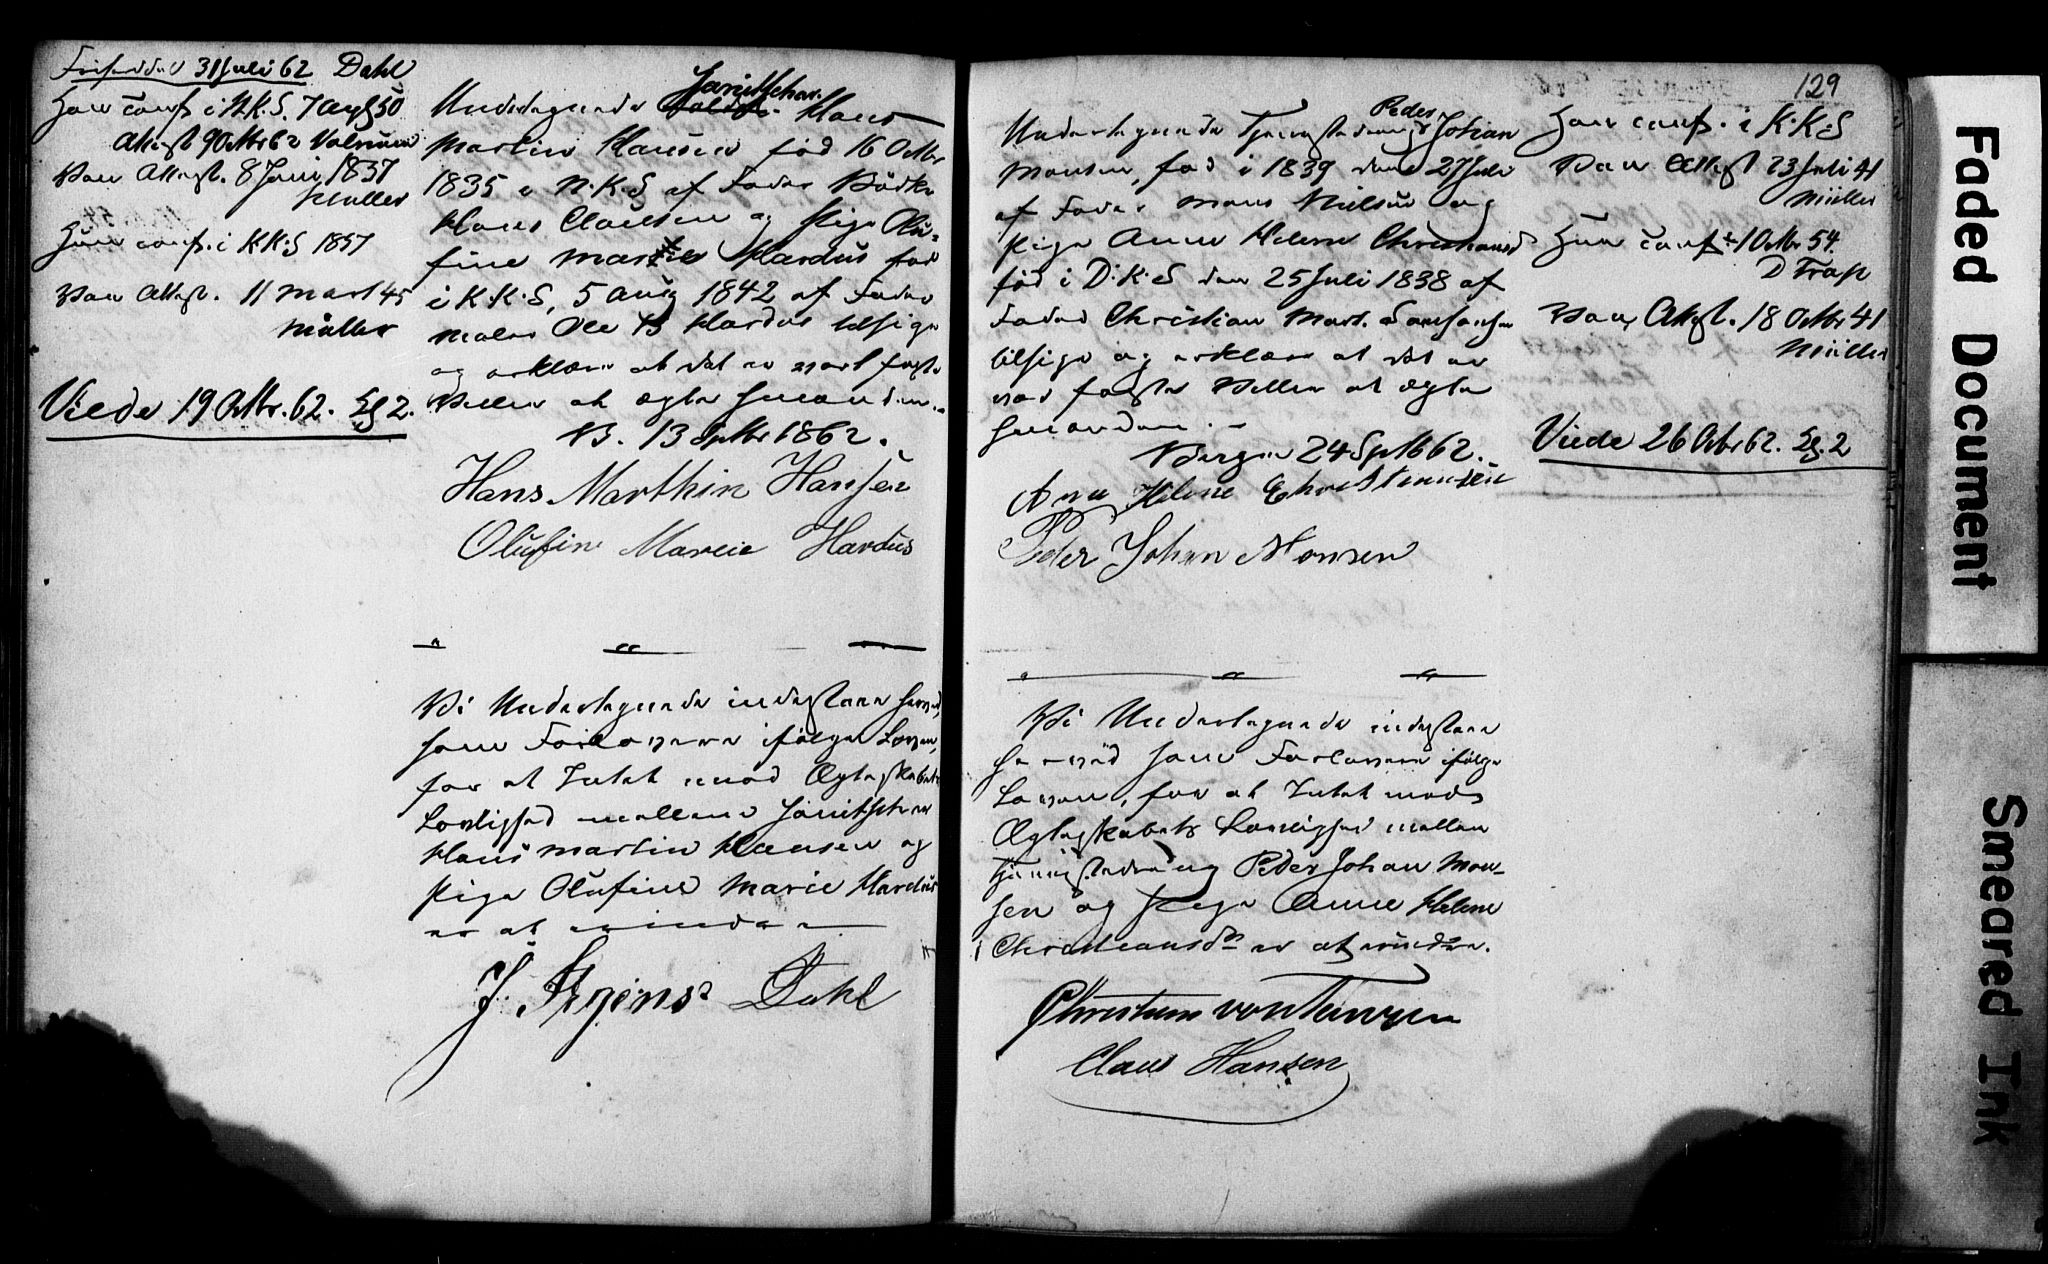 31 Juli 62 Dahl
Han conf. i N.K.S. 7 Aug 50
Attest 9 Octbr 62
Vac Attest. 8 Juni 1837
Müller
Hun conf. i K.K.S 1857
Vac Attest. 11 Mart 45
Müller
Viede 19 Octbr. 62. Eg 2.
Undertegnede Janitschar. Hans
Martin Hansen fød 16 Octbr
1835 i N.K.S af Fader Bødker
Hans Clausen og Pige Olu-
fine Marie Hardus fød
i K.K.S, 5 Aug 1842 af Fader
Maler Ole B Hardus tilsige
og erklære at det er vort faste
Villie at ægte hinanden.
B. 13 Septbr 1862.
Hans Marthin Hansen
Olufine Mareie Hardus
Vi Undertegnede indestaae herved,
som Forlovere ifølge Loven,
for at Intet imod Ægteskabets
Lovlighed mellem Janitschar
Hans Martin Hansen og
Pige Olufine Marie Hardus
er at erindre
J. Irgens Dahl
129
Undertegnede Tjenestedreng Peder Johan
Monsen, fød i 1839 den 27 Juli
af Fader Mons Nielsen og
Pige Anne Helene Christiansd
fød i D.K.S den 25 Juli 1838 af
Fader Christian Mart.
tilsige og erklære at det er
vor faste Villie at ægte
hinanden.
Bergen 24 Sept 62.
Ane Helene Christiansen
Peder Johan Monsen
Vi Undertegnede indestaae
herved som Forlovere ifølge
Loven, for at Intet imod
Ægteskabets Lovlighed mellem
Tjenestedreng Peder Johan Mon-
sen og Pige Anne Helene
Christiansd er at erindre.
Christian von Tangen
Claus Hansen
Han conf. i K.K.S
Vac Attest 23 Juli 41
Müller
Hun conf. 1 Octbr 54.
D Trap
Vac Attest. 18 Octbr 41
Müller
Viede 26 Octbr 62. Eg. 2
Faded Document
Smeared Ink